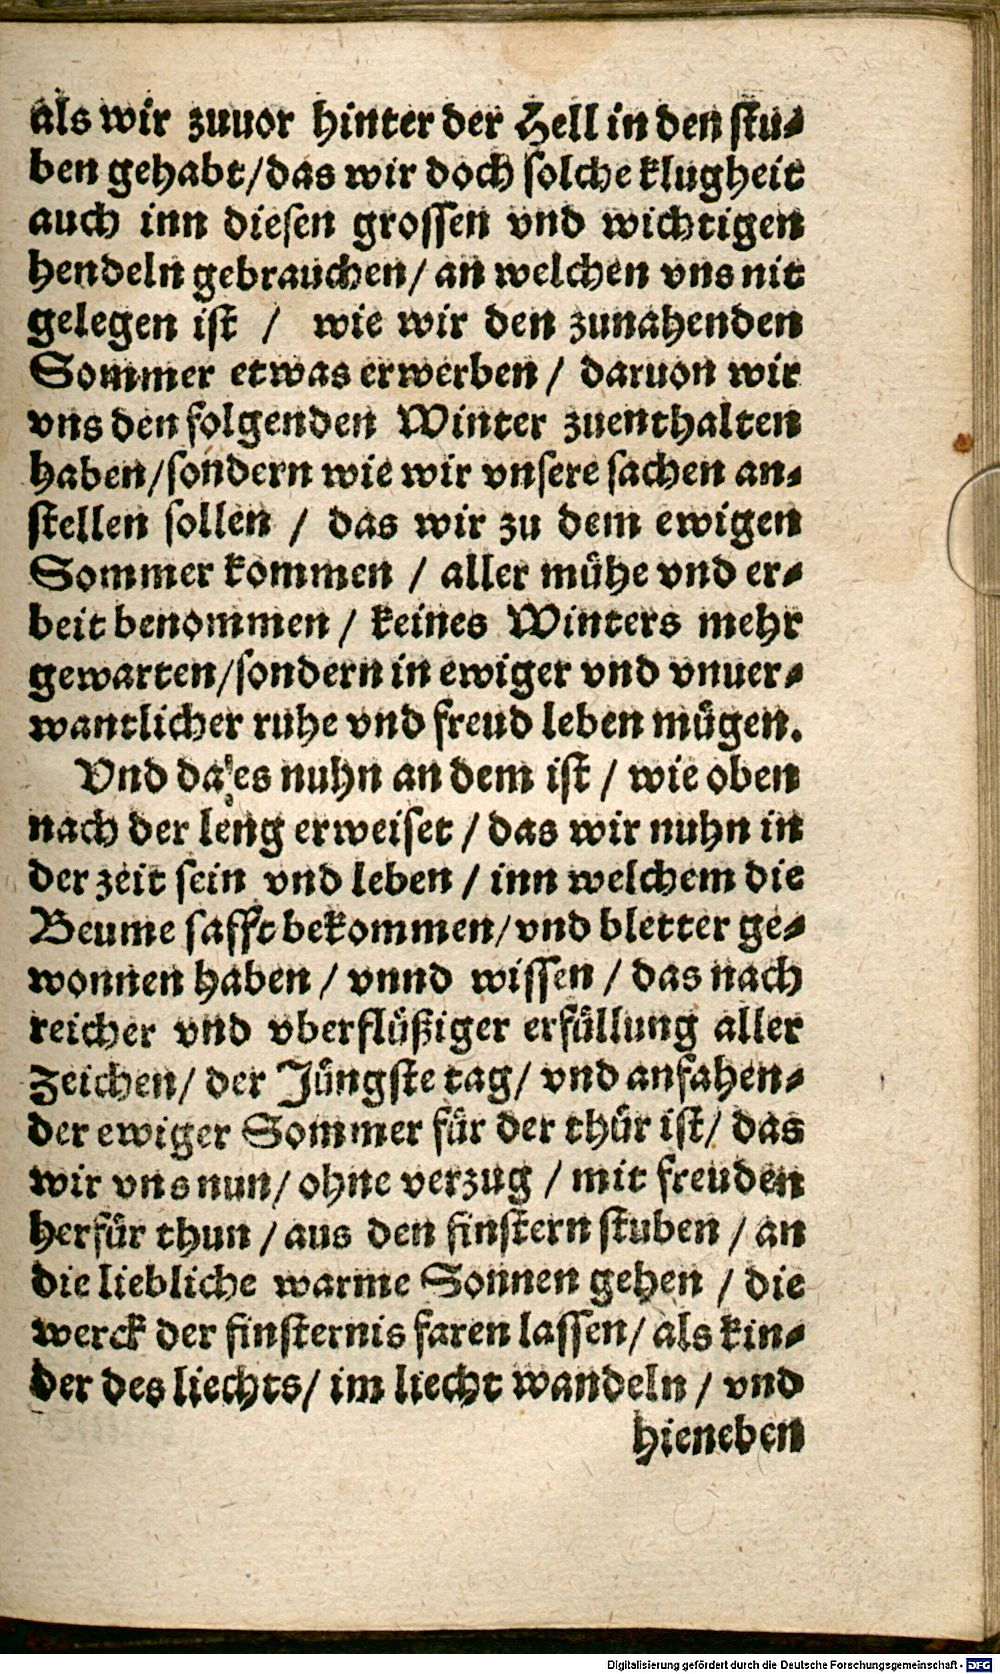 als wir zuuor hinter der Hell in den stu-
ben gehabt/das wir doch solche klugheit
auch inn diesen grossen vnd wichtigen
hendeln gebrauchen/ an welchen vns nit
gelegen ist / wie wir den zunahenden
Sommer etwas erwerben / daruon wir
vns den folgenden Winter zuenthalten
haben/sondern wie wir vnsere sachen an-
stellen sollen / das wir zu dem ewigen
Sommer kommen / aller mühe vnd er-
beit benommen / keines Winters mehr
gewarten/sondern in ewiger vnd vnuer-
wantlicher ruhe vnd freud leben mügen.
Vnd da es nuhn an dem ist / wie oben
nach der leng erweiset / das wir nuhn in
der zeit sein vnd leben / inn welchem die
Beume safft bekommen/vnd bletter ge-
wonnen haben / vnnd wissen / das nach
reicher vnd vberflüßiger erfüllung aller
Zeichen/ der Jüngste tag/ vnd anfahen-
der ewiger Sommer für der thür ist/ das
wir vns nun/ ohne verzug / mit freuden
herfür thun / aus den finstern stuben / an
die liebliche warme Sonnen gehen / die
werck der finsternis faren lassen/ als kin-
der des liechts/ im liecht wandeln / vnd
hieneben
Digitalisierung gefördert durch die Deutsche Forschungsgemeinschaft - DFG